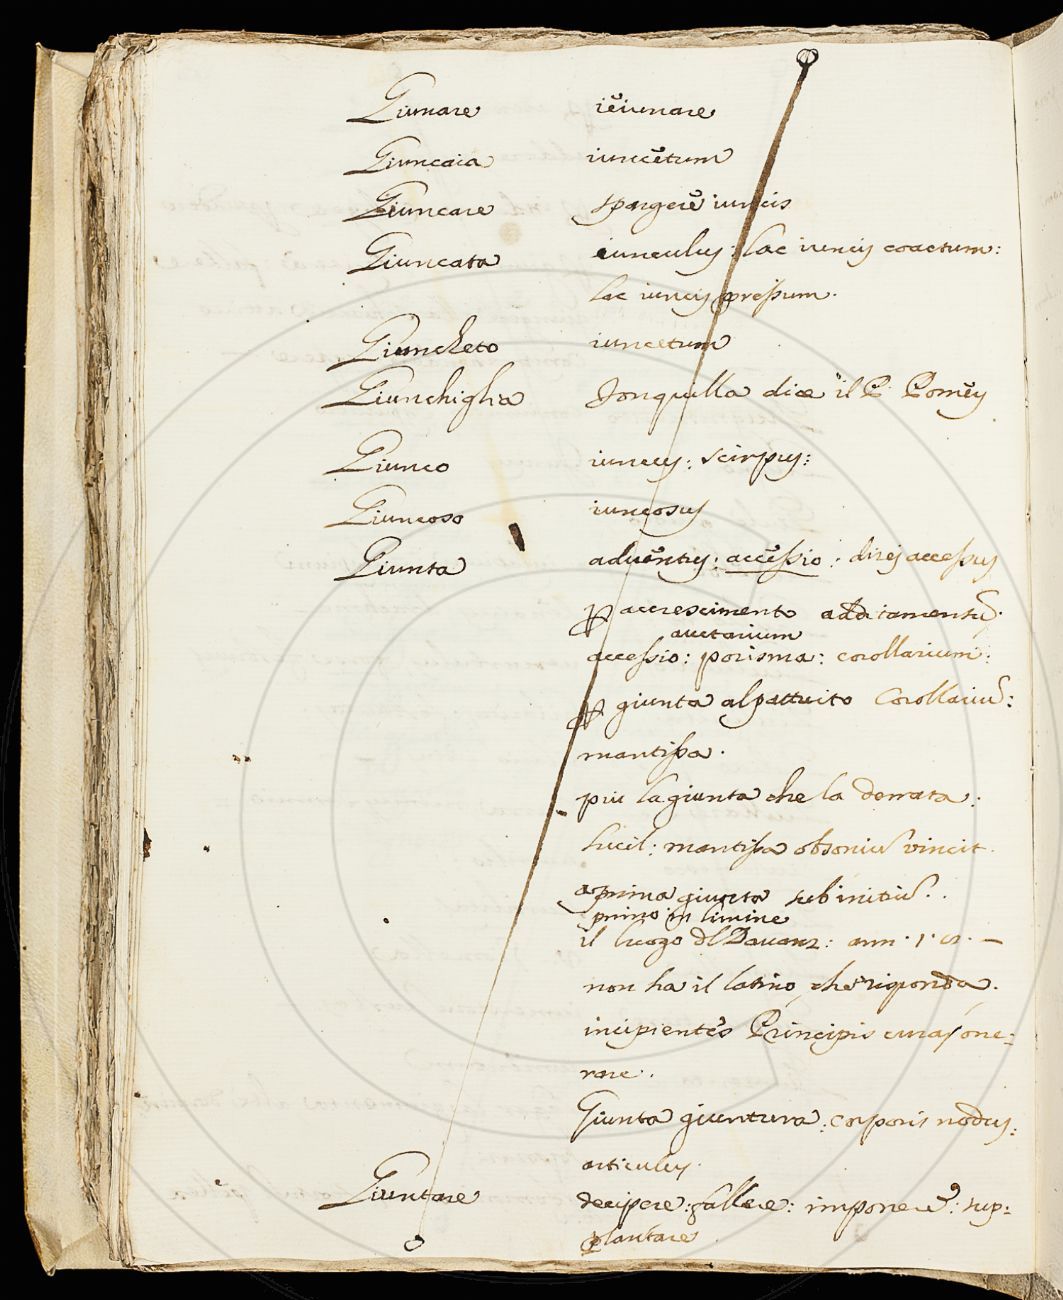 Giunare iĕiunare
Giuncaia iuncĕtum
Giuncare spargerĕ iuncis
Giuncata iunculus: lac iuncis coactum:
lac iuncis pressum.
Giuncheto iuncetum
Giunchiglia Jonquilla dice il P. Pomĕy
Giunco iuncus: scirpus:
Giuncoso iuncosus
Giunta advĕntus: accĕssio: accessus
accrescimento additamentũ.
auctarium
accessio: porisma: corollarium:
giunta al pattuito Corollariũ:
mantissa.
piu la giunta che la derrata:
Lucil: mantissa obsoniũ vincit.
a prima giunta sub initiũ.
primo in limine
il luogo dl Davanz: ann. 1.
non ha il latino che risponda.
incipientĕs Principis curas one-
rare.
Giunta giuntura: corporis nodus:
articulus.
Giuntare decipere: fallere: imponerĕ: sup:
plantare.